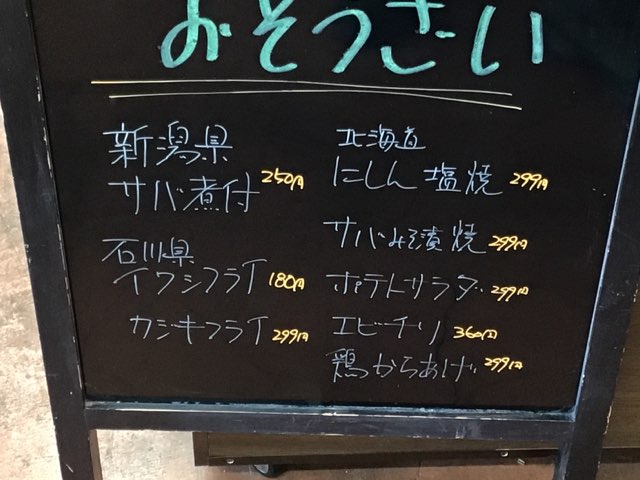 おそうざい
新潟県
サバ煮付 250円
石川県
イワシフライ 180円
カジキフライ 299円
北海道
にしん塩焼 299円
サバみそ漬焼 299円
ポテトサラダ 299円
エビチリ 360円
鶏からあげ 299円